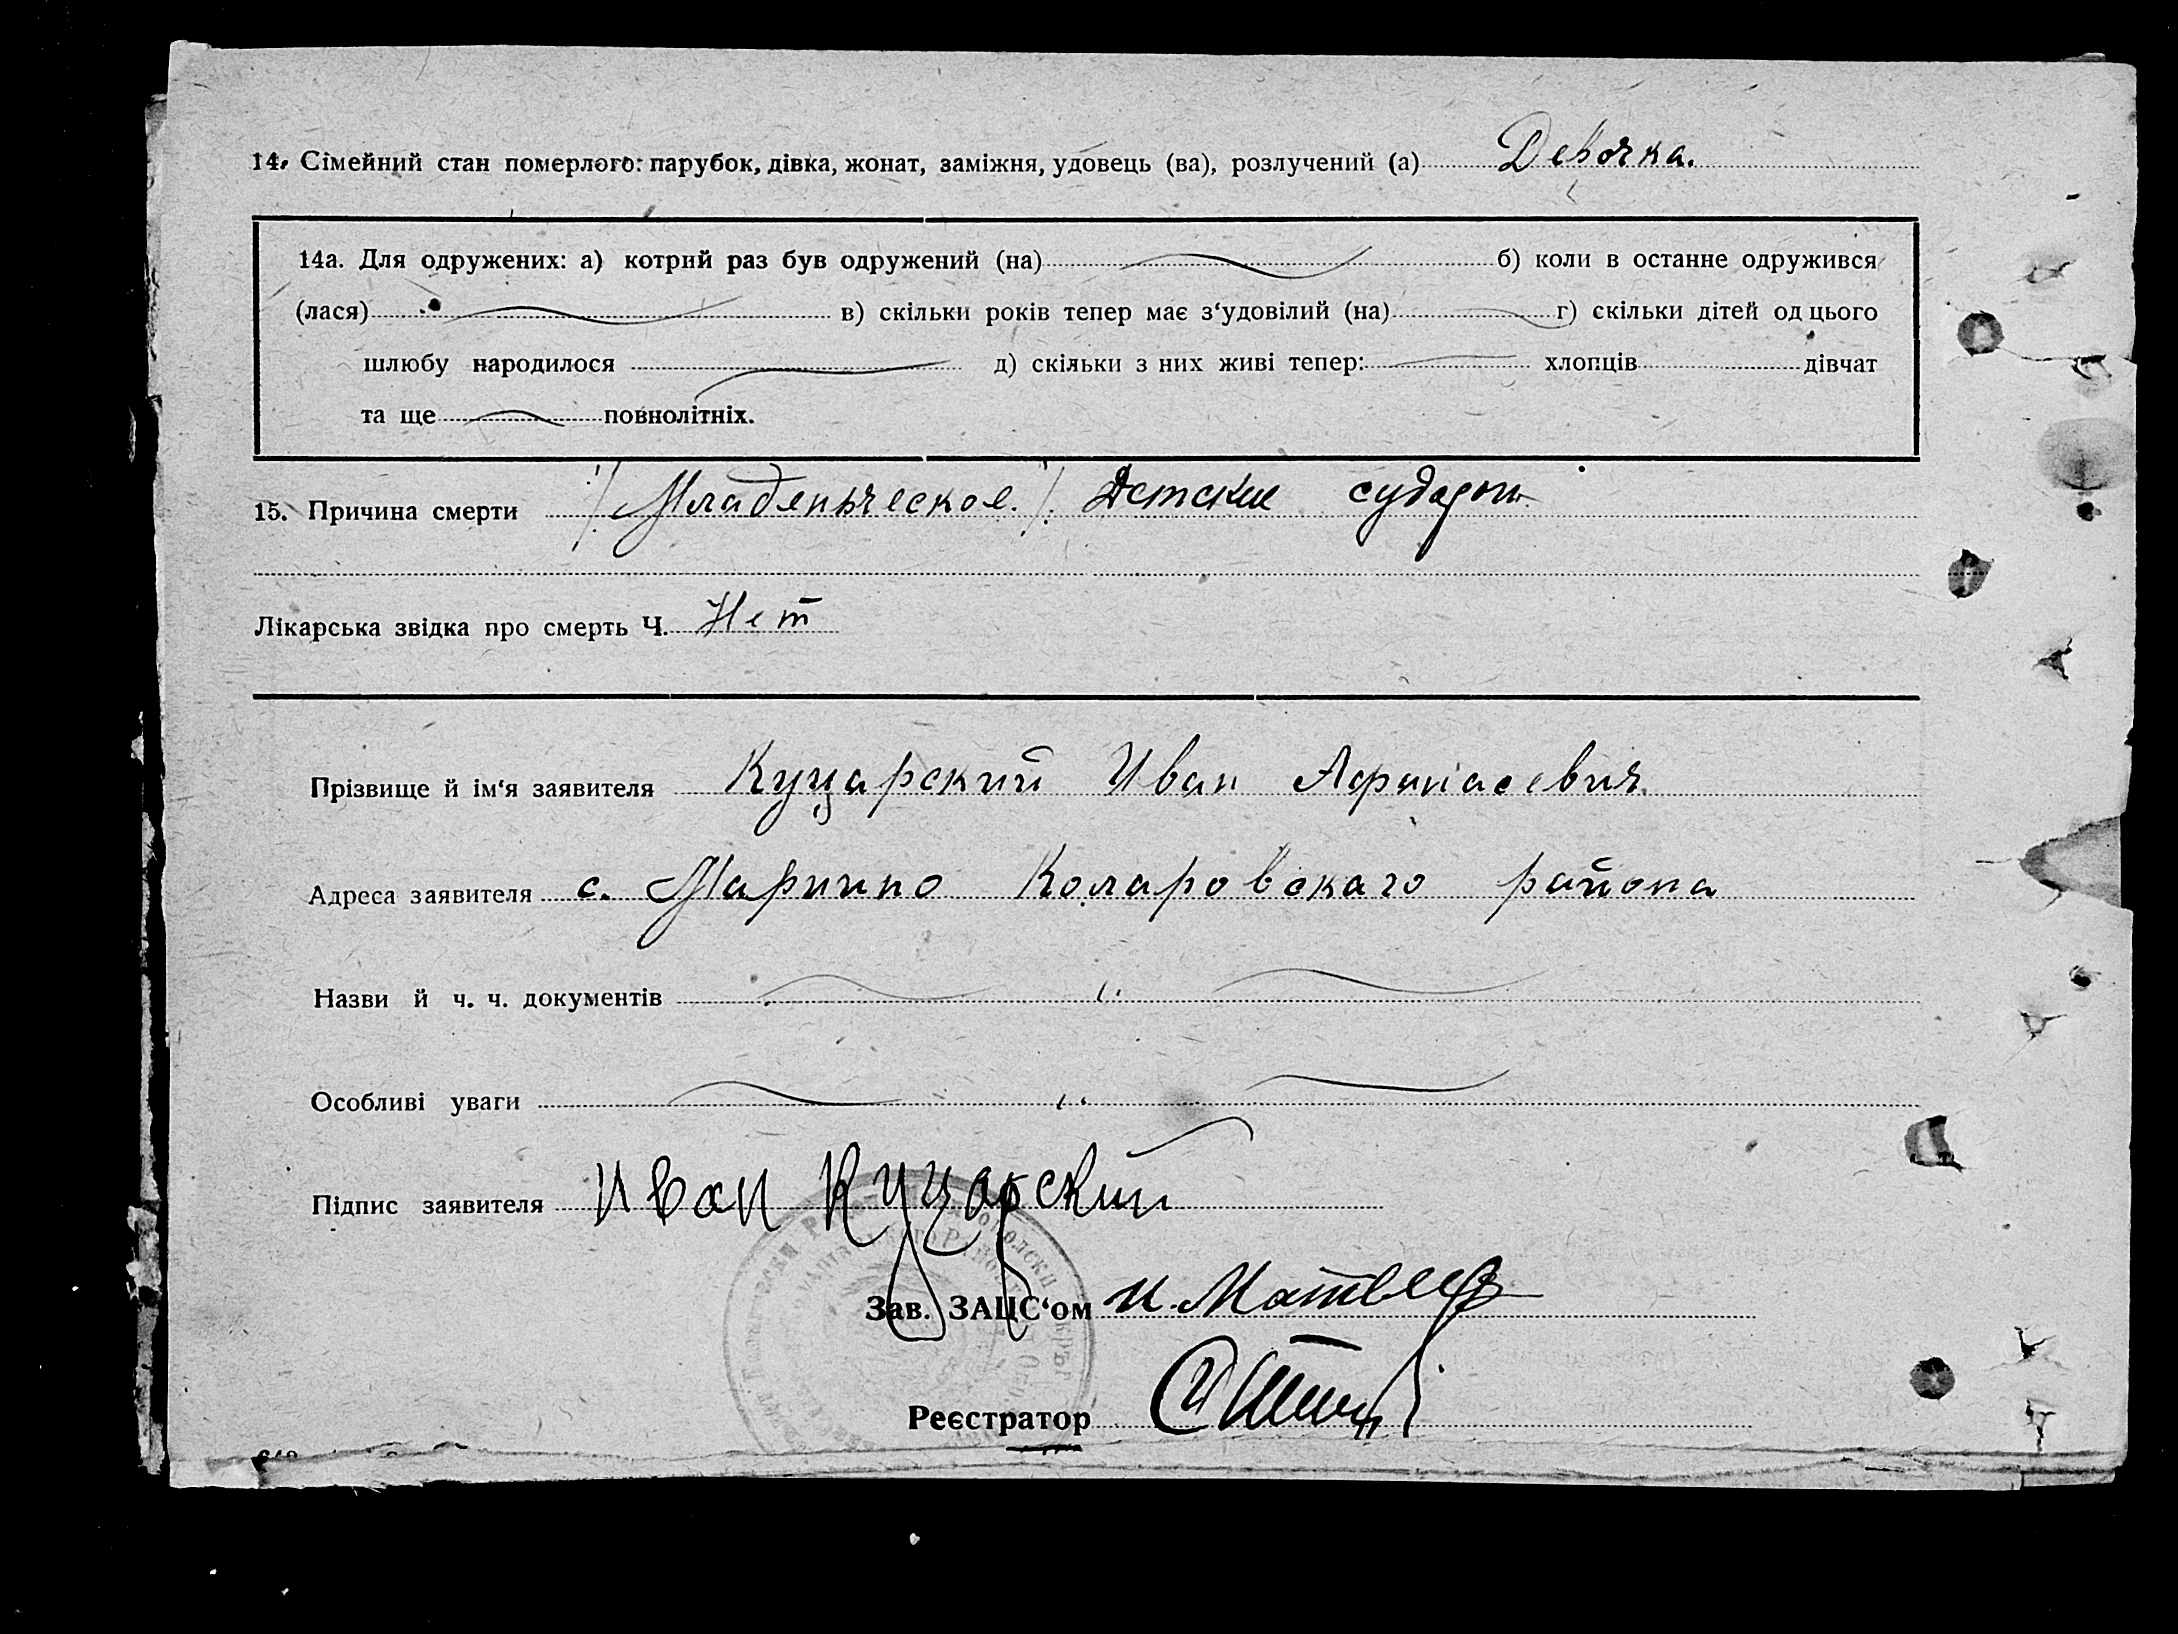 14. Сімейний стан померлого: парубок, дівка, жонат, заміжня, удовець (ва), розлучений (а) Девочка.
14а. Для одружених: а) котрий раз був одружений (на) б) коли в останне одружився
(лася) в) скільки років тепер має з‘удовілий (на) г) скільки дітей од цього
шлюбу народилося д) скільки з них живі тепер: хлопців дівчат
та ще повнолітніх.
15. Причина смерти /Младенческое./. Детские судороги
Лікарська звідка про смерть Ч. Нет
Прізвище й ім‘я заявителя Куцарский Иван Афанасевич
Адреса заявителя с. Марино Коларовскаго района
Назви й ч. ч. документів
Особливі уваги
Підпис заявителя Иван Куцарский
Зав. ЗАЦС‘ом И. Матвеев
Реєстратор